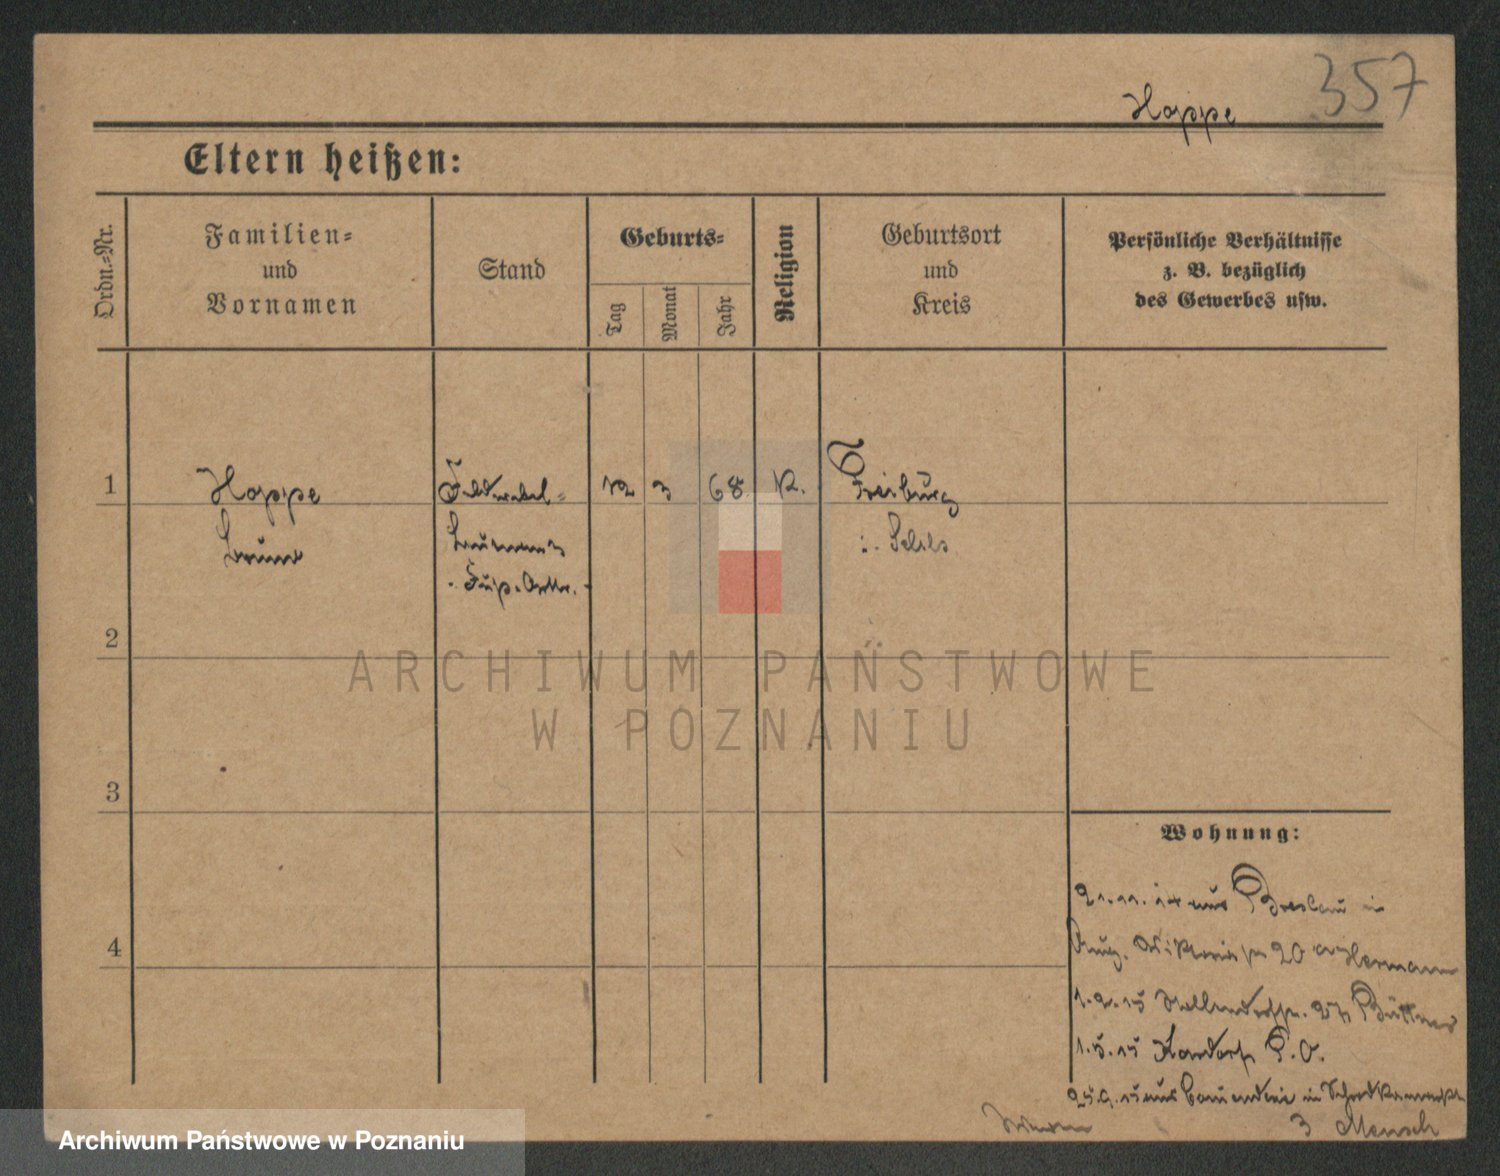 357
Hoppe
Eltern heißen:
Ordn.-Nr.
Familien-
und
Vornamen
Stand
Geburts-
Tag
Monat
Jahr
Religion
Geburtsort
und
Kreis
Persönliche Verhältnisse
z. B. bezüglich
des Gewerbes usw.
1
Hoppe
Bruno
Feldwebel-
12
3
68
K.
Freiburg
i. Schles
2
3
4
Wohnung:
21.11.14 aus Breslau in
Aug. Viktoria str 20 Hermann
1.2.15 27 Büttner
1.5.15
in
3 Mensch
ARCHIWUM PAŃSTWOWE
W POZNANIU
Archiwum Państwowe w Poznaniu